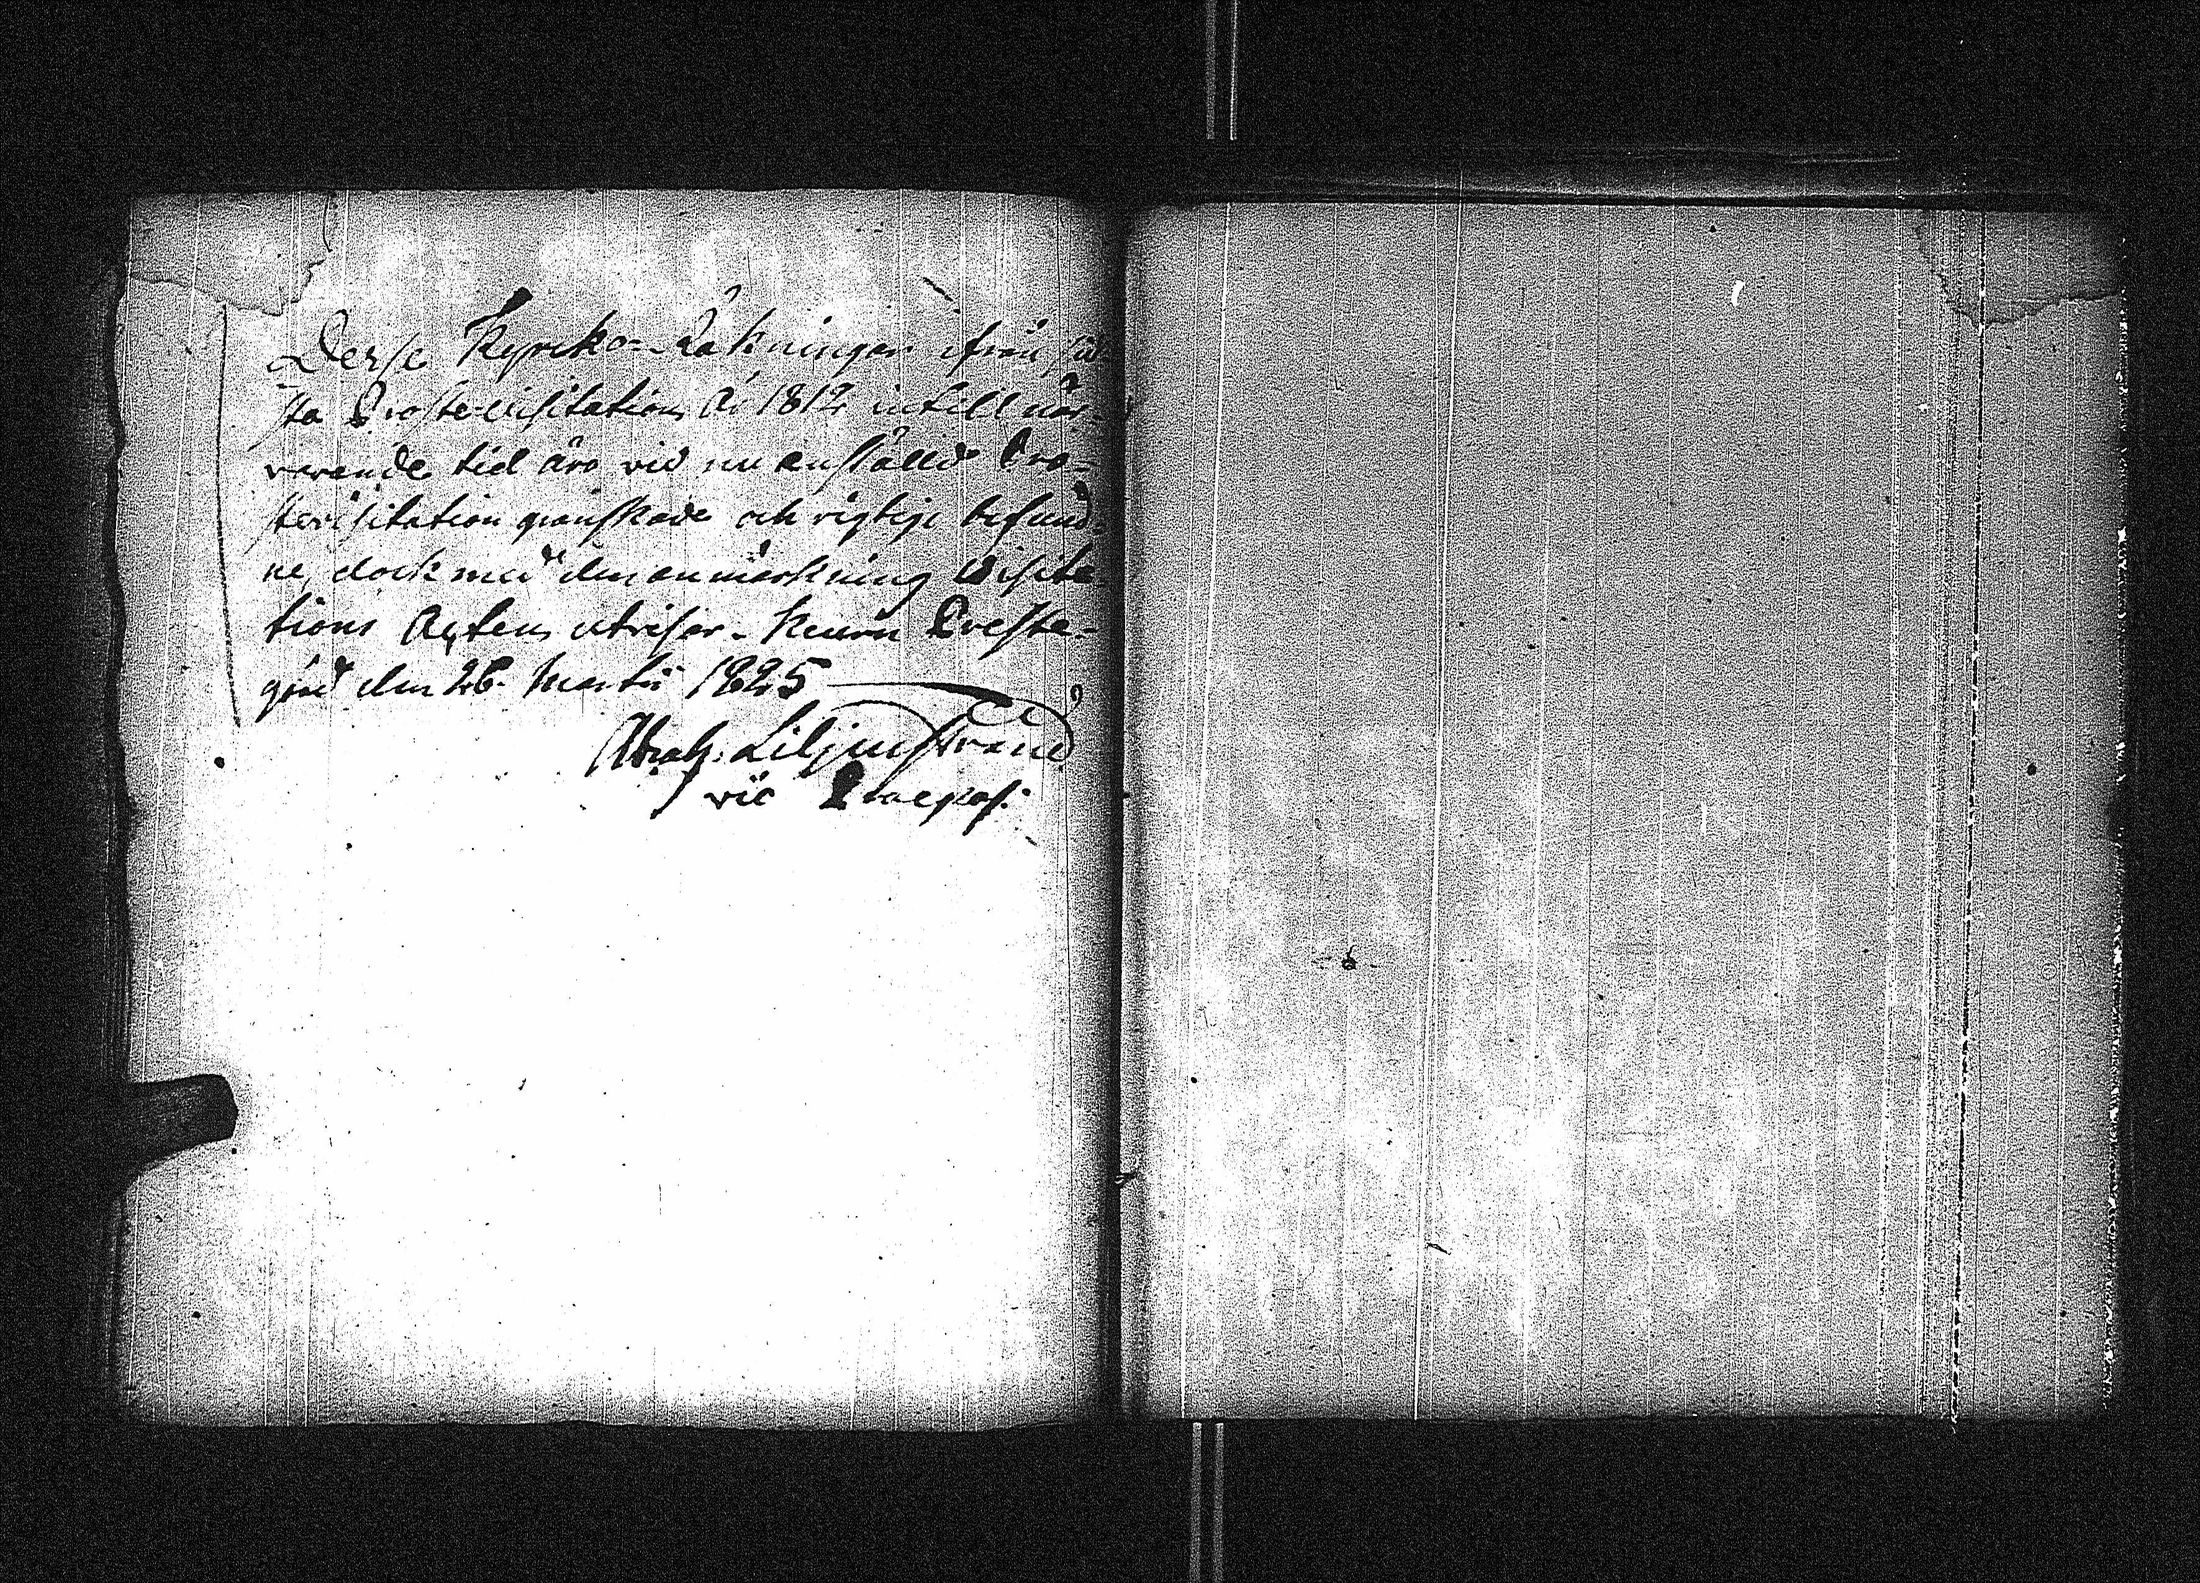 Desse Kyrko-Räkningar ifrån sid-
sta Proste-visitation År 1812 intill när-
varande tid äro vid nu anstäld Pro-
stevisitation granskade och rigtige befund-
ne, dock med den anmärkning Visita-
tions Acten utvisar. Kumu Preste-
gård den 26. Martii 1825
Abrah. Liljenstrand
vic Praepos: